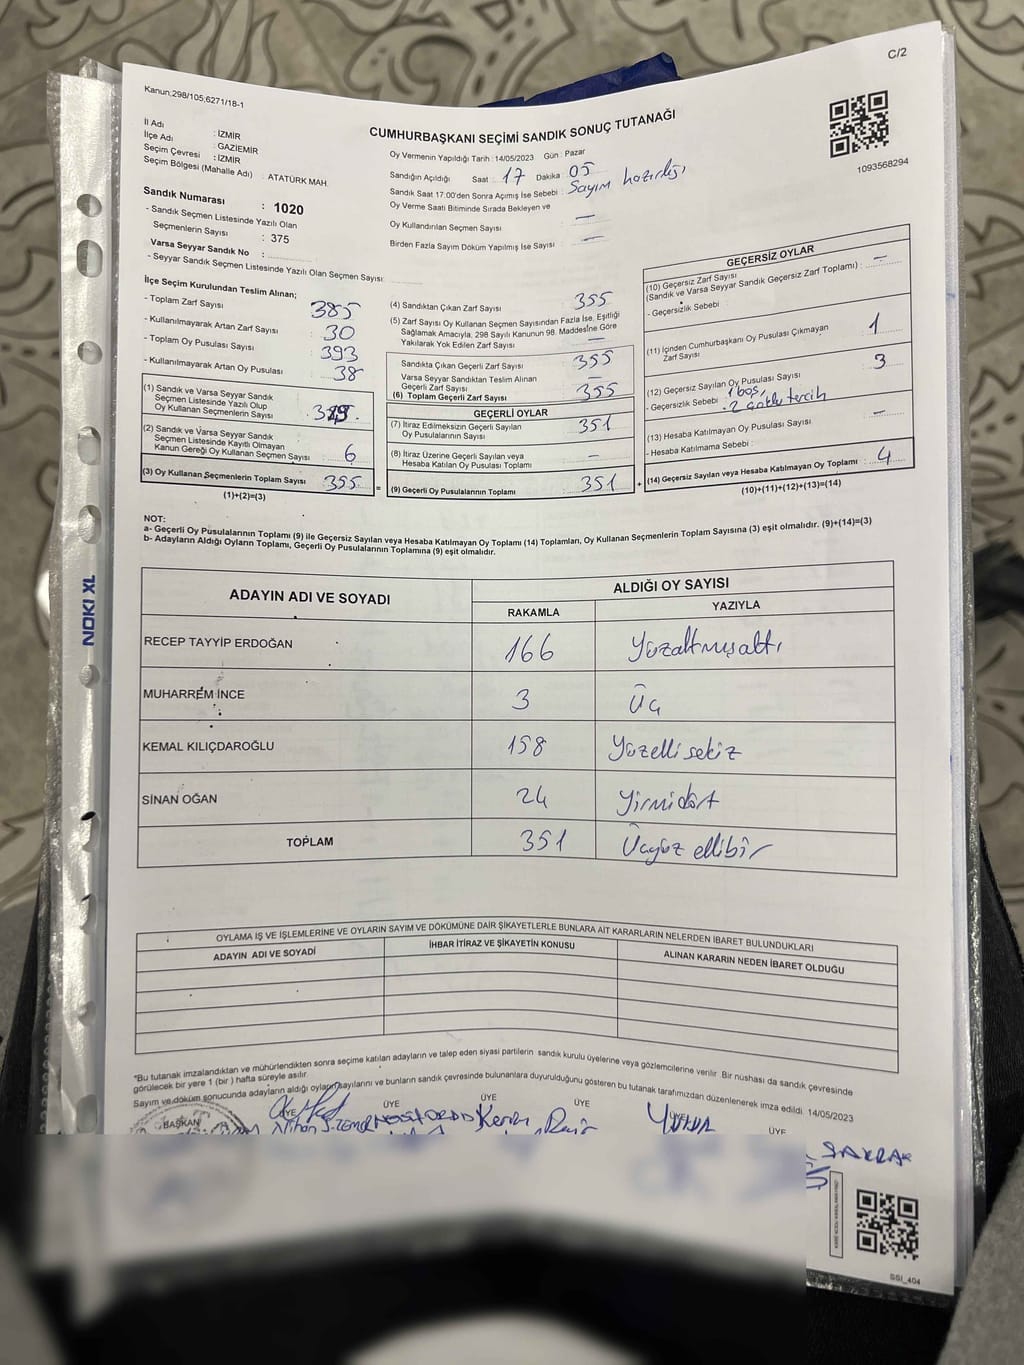 C/2
Kanun,298/105,6271/18-1
CUMHURBAŞKANI SEÇİMİ SANDIK SONUÇ TUTANAĞI
1093568294
İl Adı : İZMİR
İlçe Adı : GAZİEMİR
Seçim Çevresi : İZMİR
Seçim Bölgesi (Mahalle Adı) : ATATÜRK MAH.
Sandık Numarası : 1020
- Sandık Seçmen Listesinde Yazılı Olan
Seçmenlerin Sayısı : 375
Varsa Seyyar Sandık No :
- Seyyar Sandık Seçmen Listesinde Yazılı Olan Seçmen Sayısı:
Oy Vermenin Yapıldığı Tarih : 14/05/2023 Gün : Pazar
Sandığın Açıldığı Saat : 17 Dakika : 05
Sandık Saat 17.00'den Sonra Açımış İse Sebebi : Sayım hazırlığı
Oy Verme Saati Bitiminde Sırada Bekleyen ve
Oy Kullandırılan Seçmen Sayısı : —
Birden Fazla Sayım Döküm Yapılmış İse Sayısı : —
İlçe Seçim Kurulundan Teslim Alınan;
- Toplam Zarf Sayısı : 385
- Kullanılmayarak Artan Zarf Sayısı : 30
- Toplam Oy Pusulası Sayısı : 393
- Kullanılmayarak Artan Oy Pusulası : 38
(1) Sandık ve Varsa Seyyar Sandık
Seçmen Listesinde Yazılı Olup
Oy Kullanan Seçmenlerin Sayısı :
(2) Sandık ve Varsa Seyyar Sandık
Seçmen Listesinde Kayıtlı Olmayan
Kanun Gereği Oy Kullanan Seçmen Sayısı : 6
(3) Oy Kullanan Seçmenlerin Toplam Sayısı : 355
(1)+(2)=(3)
(4) Sandıktan Çıkan Zarf Sayısı : 355
(5) Zarf Sayısı Oy Kullanan Seçmen Sayısından Fazla İse, Eşitliği
Sağlamak Amacıyla, 298 Sayılı Kanunun 98. Maddesine Göre
Yakılarak Yok Edilen Zarf Sayısı : —
Sandıkta Çıkan Geçerli Zarf Sayısı : 355
Varsa Seyyar Sandıktan Teslim Alınan
Geçerli Zarf Sayısı
(6) Toplam Geçerli Zarf Sayısı : 355
GEÇERLİ OYLAR
(7) İtiraz Edilmeksizin Geçerli Sayılan
Oy Pusulalarının Sayısı : 351
(8) İtiraz Üzerine Geçerli Sayılan veya
Hesaba Katılan Oy Pusulası Toplamı : —
= (9) Geçerli Oy Pusulalarının Toplamı : 351 +
GEÇERSİZ OYLAR
(10) Geçersiz Zarf Sayısı
(Sandık ve Varsa Seyyar Sandık Geçersiz Zarf Toplamı) : —
- Geçersizlik Sebebi
(11) İçinden Cumhurbaşkanı Oy Pusulası Çıkmayan
Zarf Sayısı : 1
(12) Geçersiz Sayılan Oy Pusulası Sayısı : 3
- Geçersizlik Sebebi : 1 boş,
2 çoklu tercih
(13) Hesaba Katılmayan Oy Pusulası Sayısı : —
- Hesaba Katılmama Sebebi :
(14) Geçersiz Sayılan veya Hesaba Katılmayan Oy Toplamı : 4
(10)+(11)+(12)+(13)=(14)
NOT:
a- Geçerli Oy Pusulalarının Toplamı (9) ile Geçersiz Sayılan veya Hesaba Katılmayan Oy Toplamı (14) Toplamları, Oy Kullanan Seçmenlerin Toplam Sayısına (3) eşit olmalıdır. (9)+(14)=(3)
b- Adayların Aldığı Oyların Toplamı, Geçerli Oy Pusulalarının Toplamına (9) eşit olmalıdır.
ADAYIN ADI VE SOYADI
ALDIĞI OY SAYISI
RAKAMLA YAZIYLA
RECEP TAYYİP ERDOĞAN 166 Yüzaltmışaltı
MUHARREM İNCE 3 Üç
KEMAL KILIÇDAROĞLU 158 Yüzelli sekiz
SİNAN OĞAN 24 Yirmidört
TOPLAM 351 Üçyüz ellibir
NOKI XL
OYLAMA İŞ VE İŞLEMLERİNE VE OYLARIN SAYIM VE DÖKÜMÜNE DAİR ŞİKAYETLERLE BUNLARA AİT KARARLARIN NELERDEN İBARET BULUNDUKLARI
ADAYIN ADI VE SOYADİ
İHBAR İTİRAZ VE ŞİKAYETİN KONUSU
ALINAN KARARIN NEDEN İBARET OLDUĞU
*Bu tutanak imzalandıktan ve mühürlendikten sonra seçime katılan adayların ve talep eden siyasi partilerin sandık kurulu üyelerine veya gözlemcilerine verilir. Bir nüshası da sandık çevresinde
görülecek bir yere 1 (bir ) hafta süreyle asılır.
Sayım ve döküm sonucunda adayların aldığı oyların sayılarını ve bunların sandık çevresinde bulunanlara duyurulduğunu gösteren bu tutanak tarafımızdan düzenlenerek imza edildi. 14/05/2023
BAŞKAN ÜYE ÜYE ÜYE ÜYE ÜYE ÜYE
SSİ_404